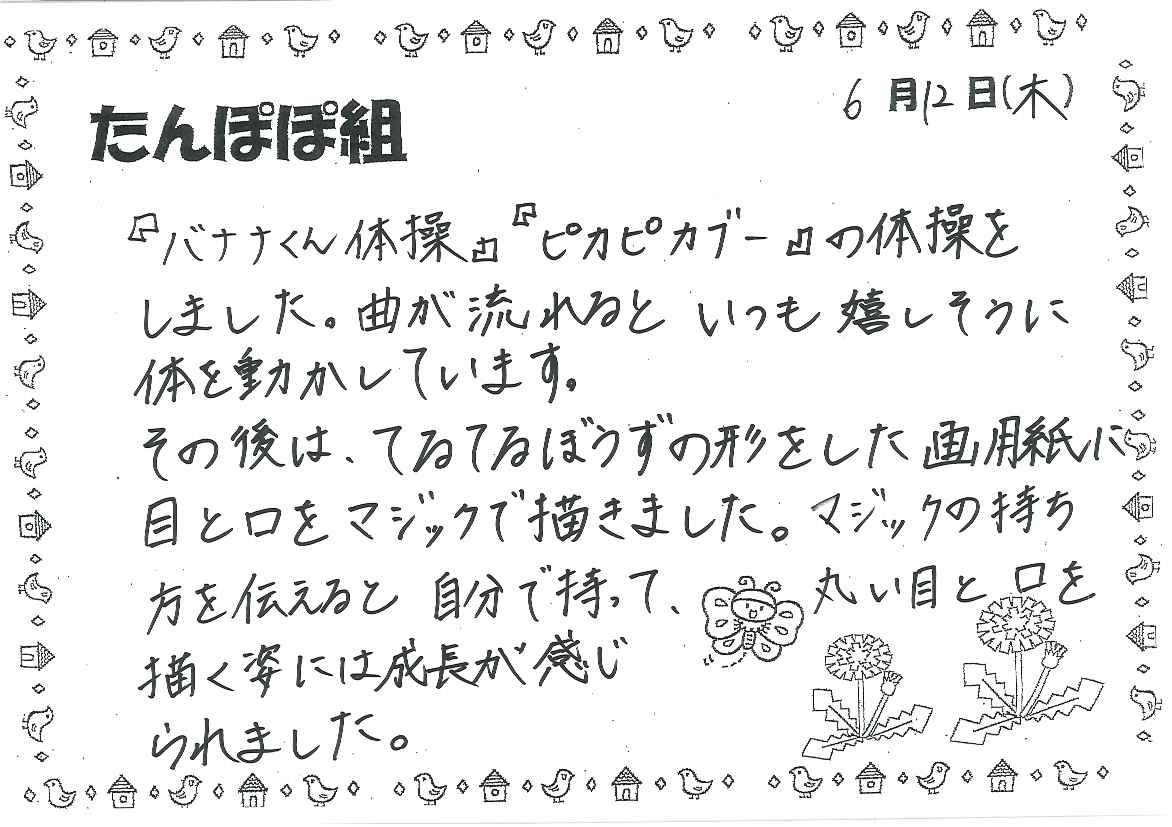 6月12日(木)
たんぽぽ組
『バナナくん体操』『ピカピカブー』の体操を
しました。曲が流れると いつも 嬉しそうに
体を動かしています。
その後は、てるてるぼうずの形をした画用紙に
目と口をマジックで描きました。マジックの持ち
方を伝えると 自分で持って、丸い目と口を
描く姿には成長が感じ
られました。